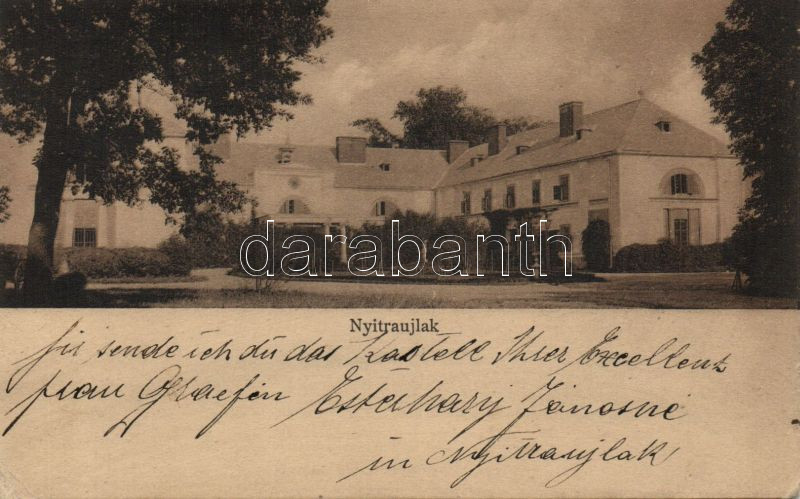 darabanth
Nyitraujlak
sende ich du das Kastell Ihrer Excellenz
frau Graefin Estăhazy Jánosné
in Nyitraujlak